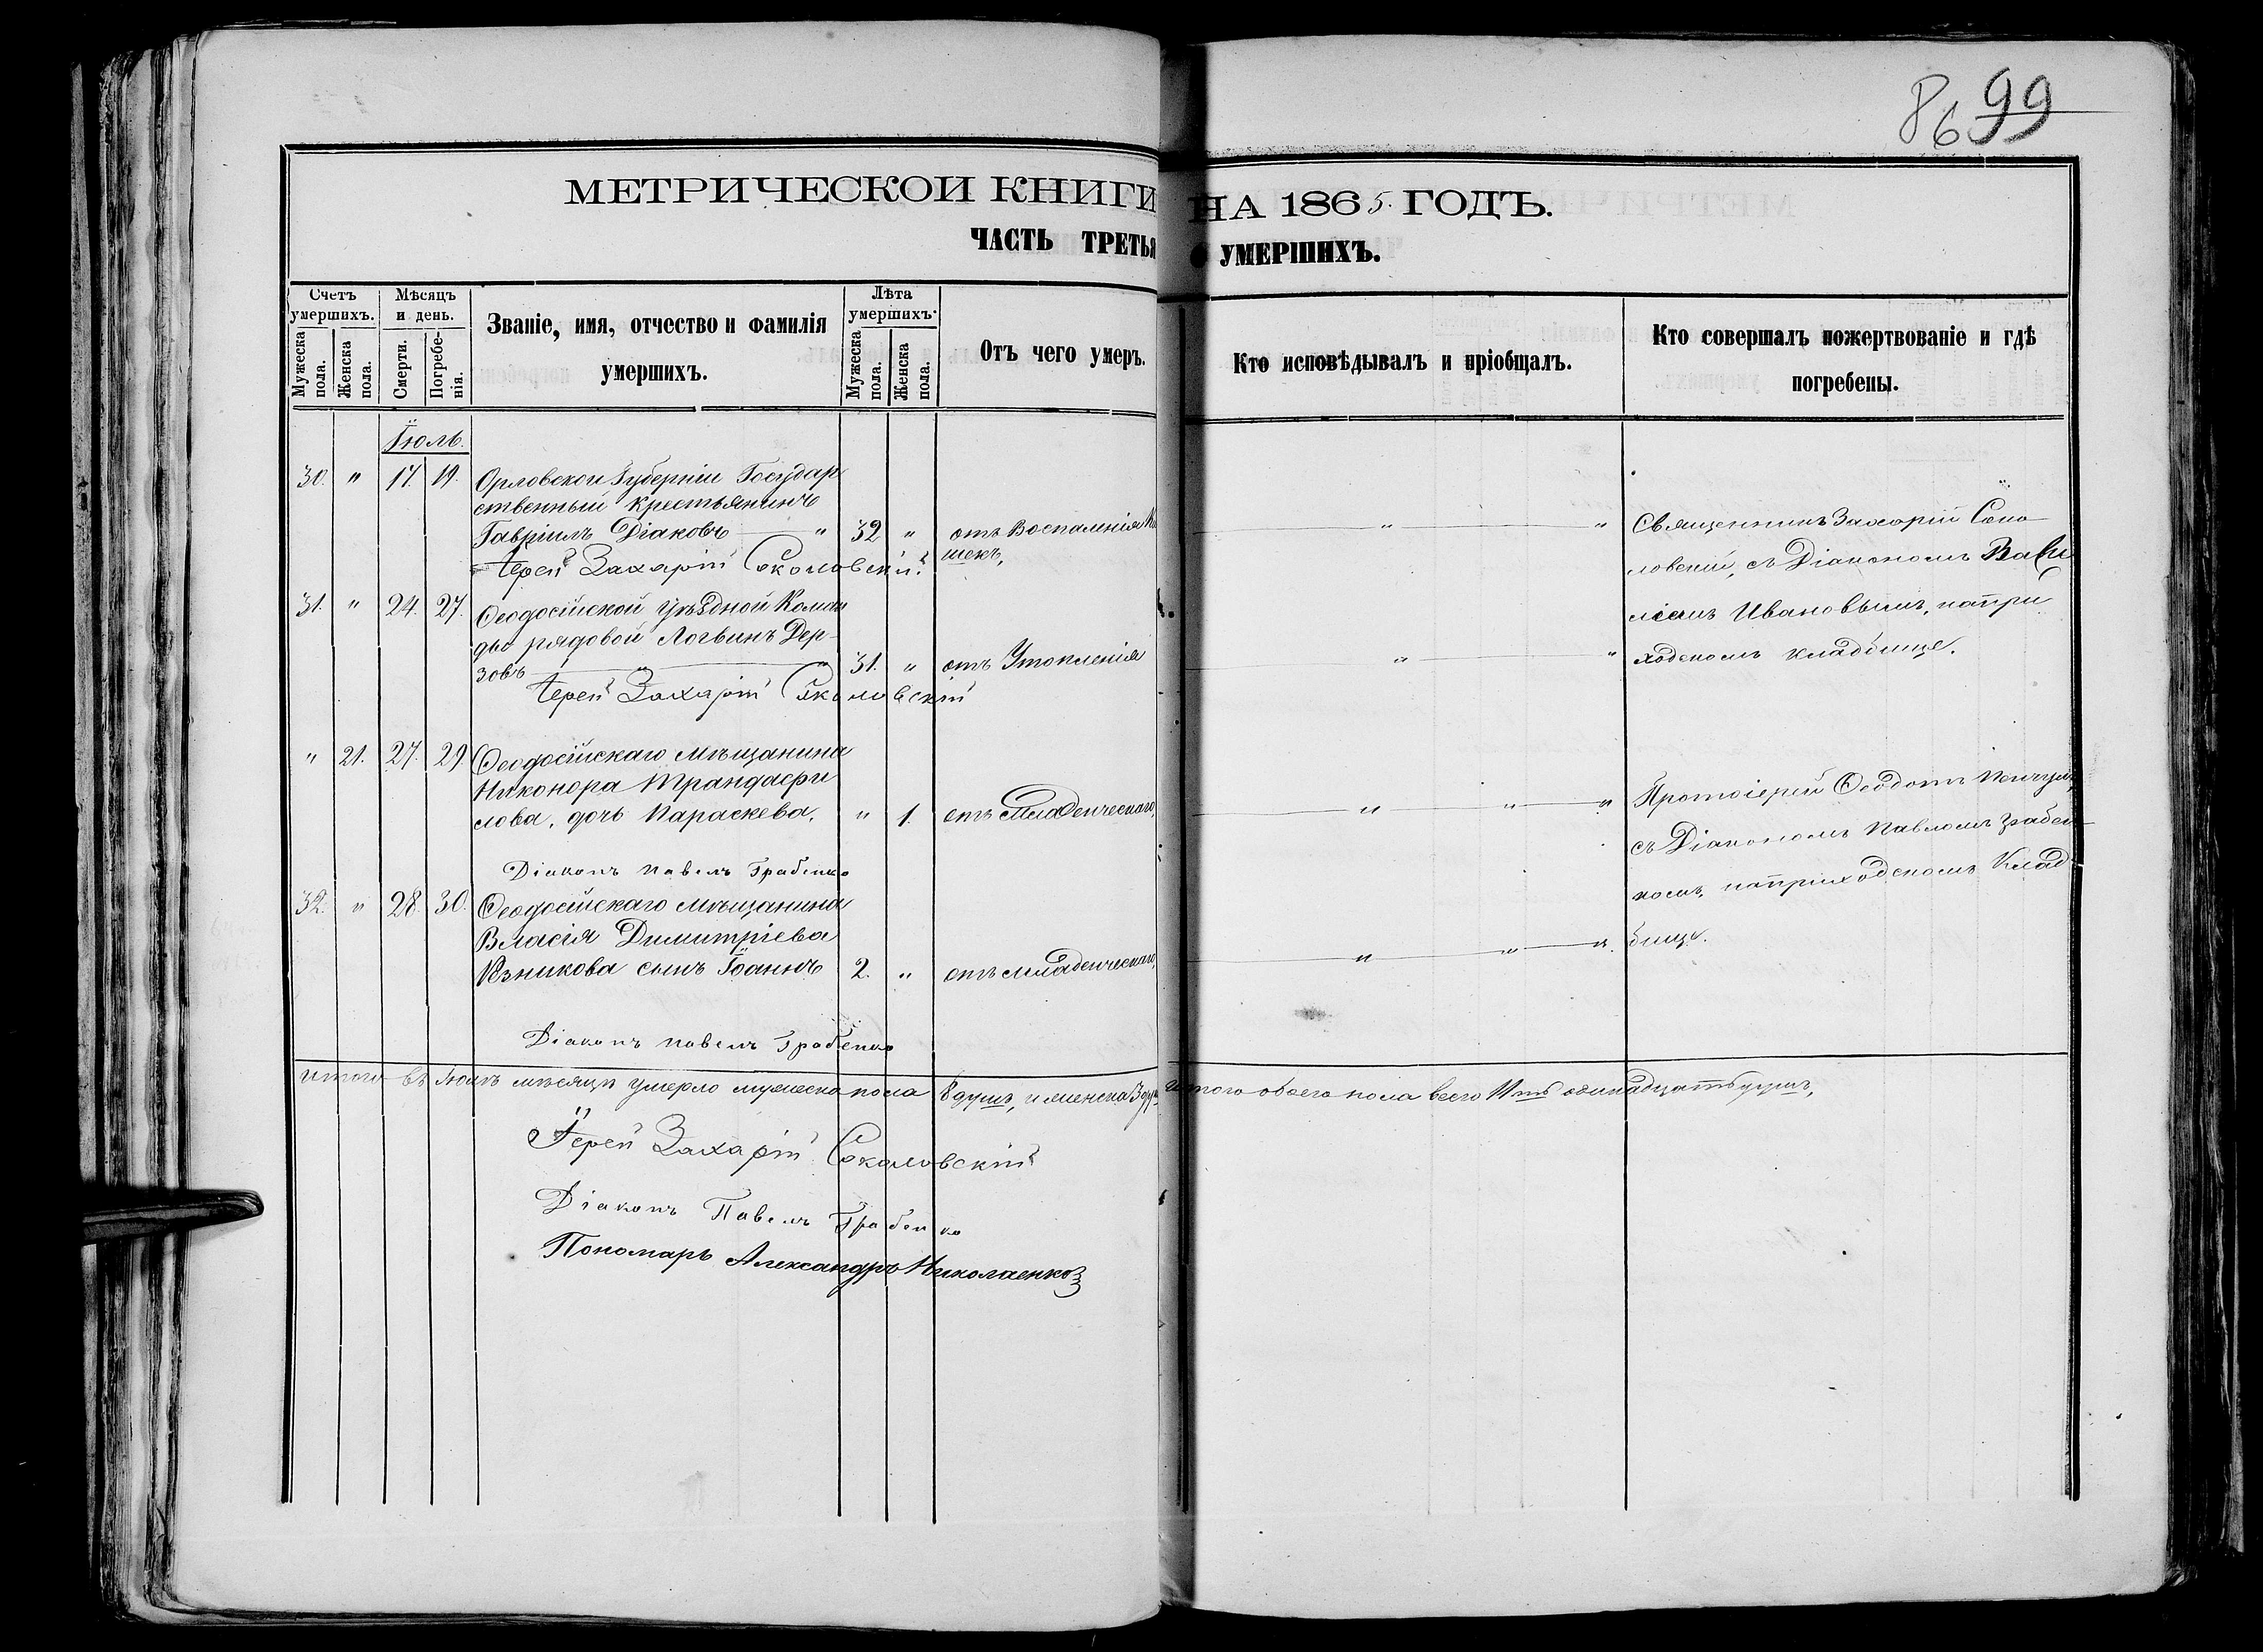 86 99
МЕТРИЧЕСКОЙ КНИГИ НА 1865. ГОДЪ.
ЧАСТЬ ТРЕТЬЯ УМЕРШИХЪ.
Счетъ умершихъ.
Мужеска пола.
Женска пола.
Мѣсяцъ и день.
Смерти.
Погребенія.
Званіе, имя, отчество и фамилія
умершихъ.
Лѣта умершихъ.
Мужеска пола.
Женска пола.
Отъ чего умеръ.
Кто исповѣдывалъ и пріобщалъ.
Кто совершалъ пожертвованіе и гдѣ
погребены.
Іюль.
30. " 17. 19. Орловской Губерніи Государ
ственный крестьянинъ
Гавріилъ Діаковъ " 32 " отъ Воспаленія Ки
шекъ,
Іерей Захарій Соколовскій.
Священникъ Захарій Соко
ловскій, съ Діакономъ Васи
ліемъ Ивановымъ, напри
ходскомъ кладбище.
31. " 24. 27. Ѳеодосійской уѣздной Коман
ды рядовой Логвинъ Дер-
зовъ " 31. " отъ Утопленія
Іерей Захарій Соколовскій
" 21. 27. 29. Ѳеодосійскаго мѣщанина
Никонора Трандафи
лова, дочь Параскева, " 1. отъ Младенческаго,
Діаконъ Павелъ Грабенко
Протоіерей Ѳеодотъ
съ Діакономъ Павломъ Грабен
комъ, наприходскомъ Клад
бище.
32. " 28. 30. Ѳеодосійскаго мѣщанина
Власія Димитріева
Рѣзникова сынъ Іоаннъ 2. " отъ младенческаго,
Діаконъ Павелъ Грабенко
Итого въ Іюлѣ мѣсяцѣ умерло мужеска пола 8 душъ, и женска 3 душ Итого обоего пола всего 11ть одинадцать душъ,
Іерей Захарій Соколовскій
Діаконъ Павелъ Грабенко
Пономарь Александръ Николаенко